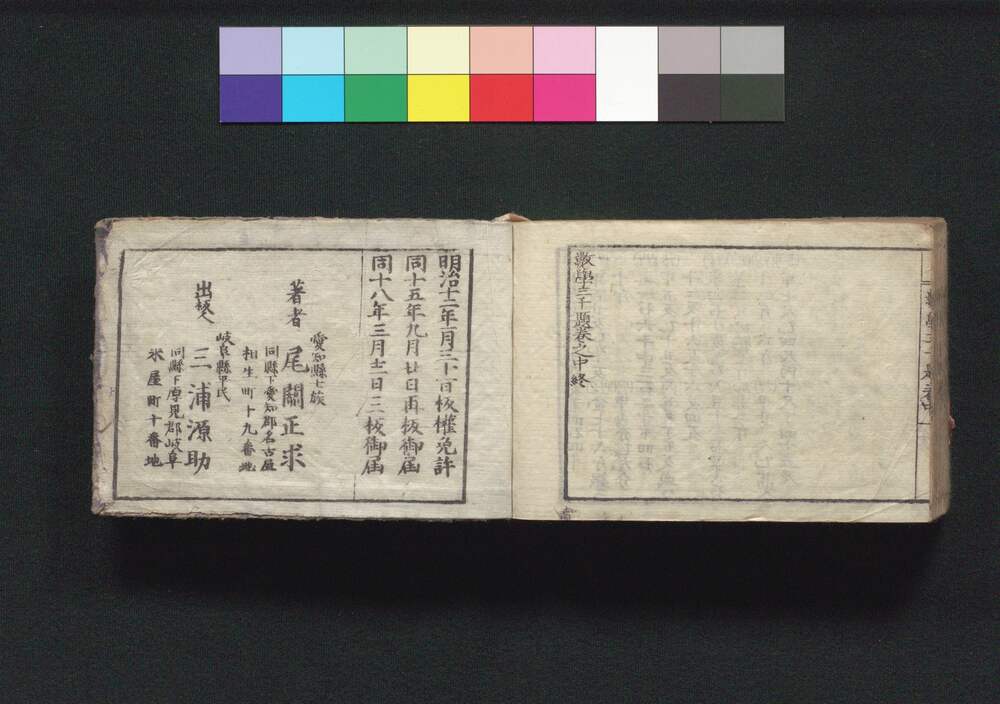 數學三千題卷之中終
明治十二年一月三十一日板權免許
同十五年九月廿日再板御届
同十八年三月十二日三板御届
愛知縣士族
著者 尾關正求
同縣下愛知郡名古屋
相生町十九番地
岐阜縣平民
出版人 三浦源助
同縣下厚見郡岐阜
米屋町十番地